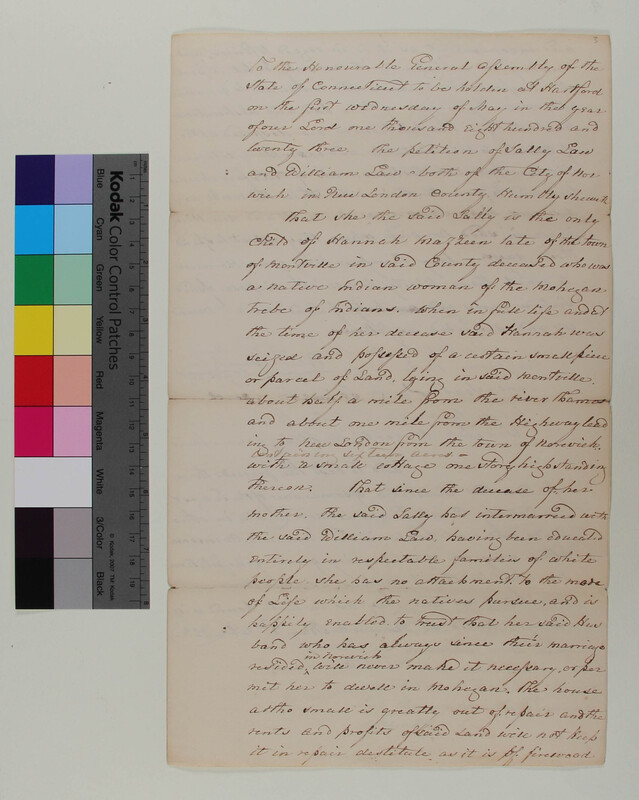 To the Honourable General Assembly of the
State of Connecticut to be holden at Hartford
on the first wednesday of May in the year
of our Lord one thousand eight hundred and
twenty three. The petition of Sally Law
and William Law both of the City of Nor
wich in New London County Humbly sheweth
That she the said Sally is the only
Child of Hannah Mazzeen late of the town
of Montville in said County deceased who was
a native Indian woman of the Mohegan
tribe of Indians. When in full life and at
the time of her decease said Hannah was
seized and possessed of a certain small piece
or parcel of Land, lying in said Montville
about half a mile from the river Thames
and about one mile from the Highway lead
ing to New London from the town of Norwich.
Containing sixteen acres –
with a small cottage one story high standing
thereon. That since the decease of her
mother, the said Sally has intermarried with
the said William Law, having been educated
entirely in respectable families of white
people, she has no attachment to the mode
of Life which the natives pursue, and is
happily enabled to trust that her said Hus
band who has always since their marriage
in Norwich
resided, will never make it necessary, or per
mit her to dwell in Mohegan. The house
altho small is greatly out of repair and the
rents and profits of said Land will not keep
it in repair destitute as it is of firewood
Kodak Color Control Patches
Blue
Cyan
Green
Yellow
Red
Magenta
White
3/Color
Black